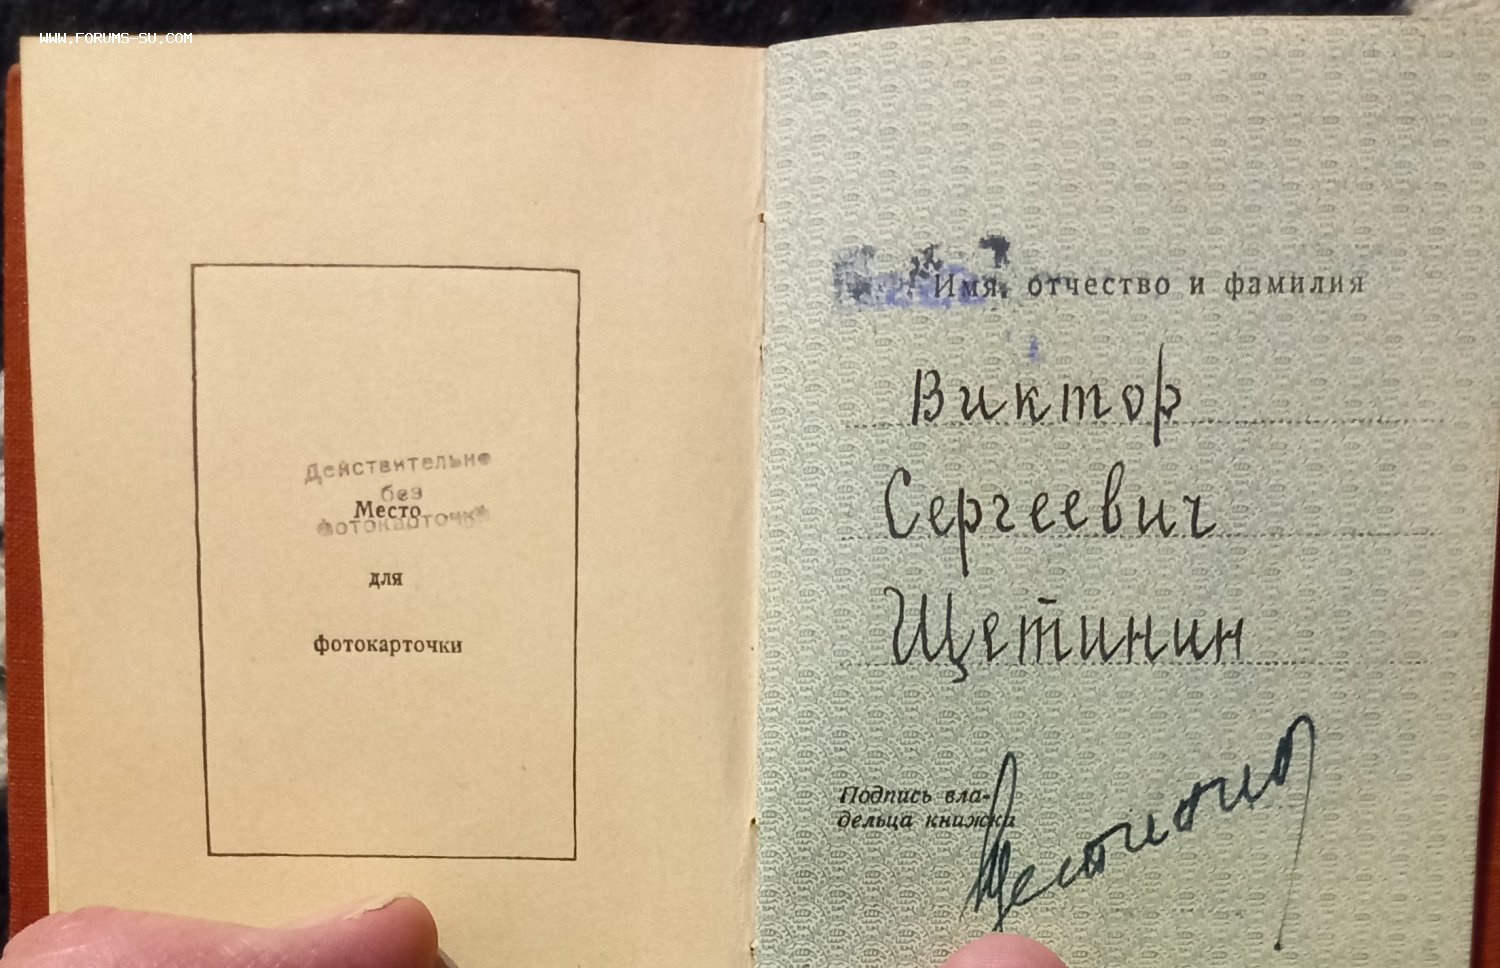 WWW.FORUMS-SU.COM
Действительно
без
фотокарточки
Место
для
фотокарточки
Имя, отчество и фамилия
Виктор
Сергеевич
Щетинин
Подпись вла-
дельца книжки